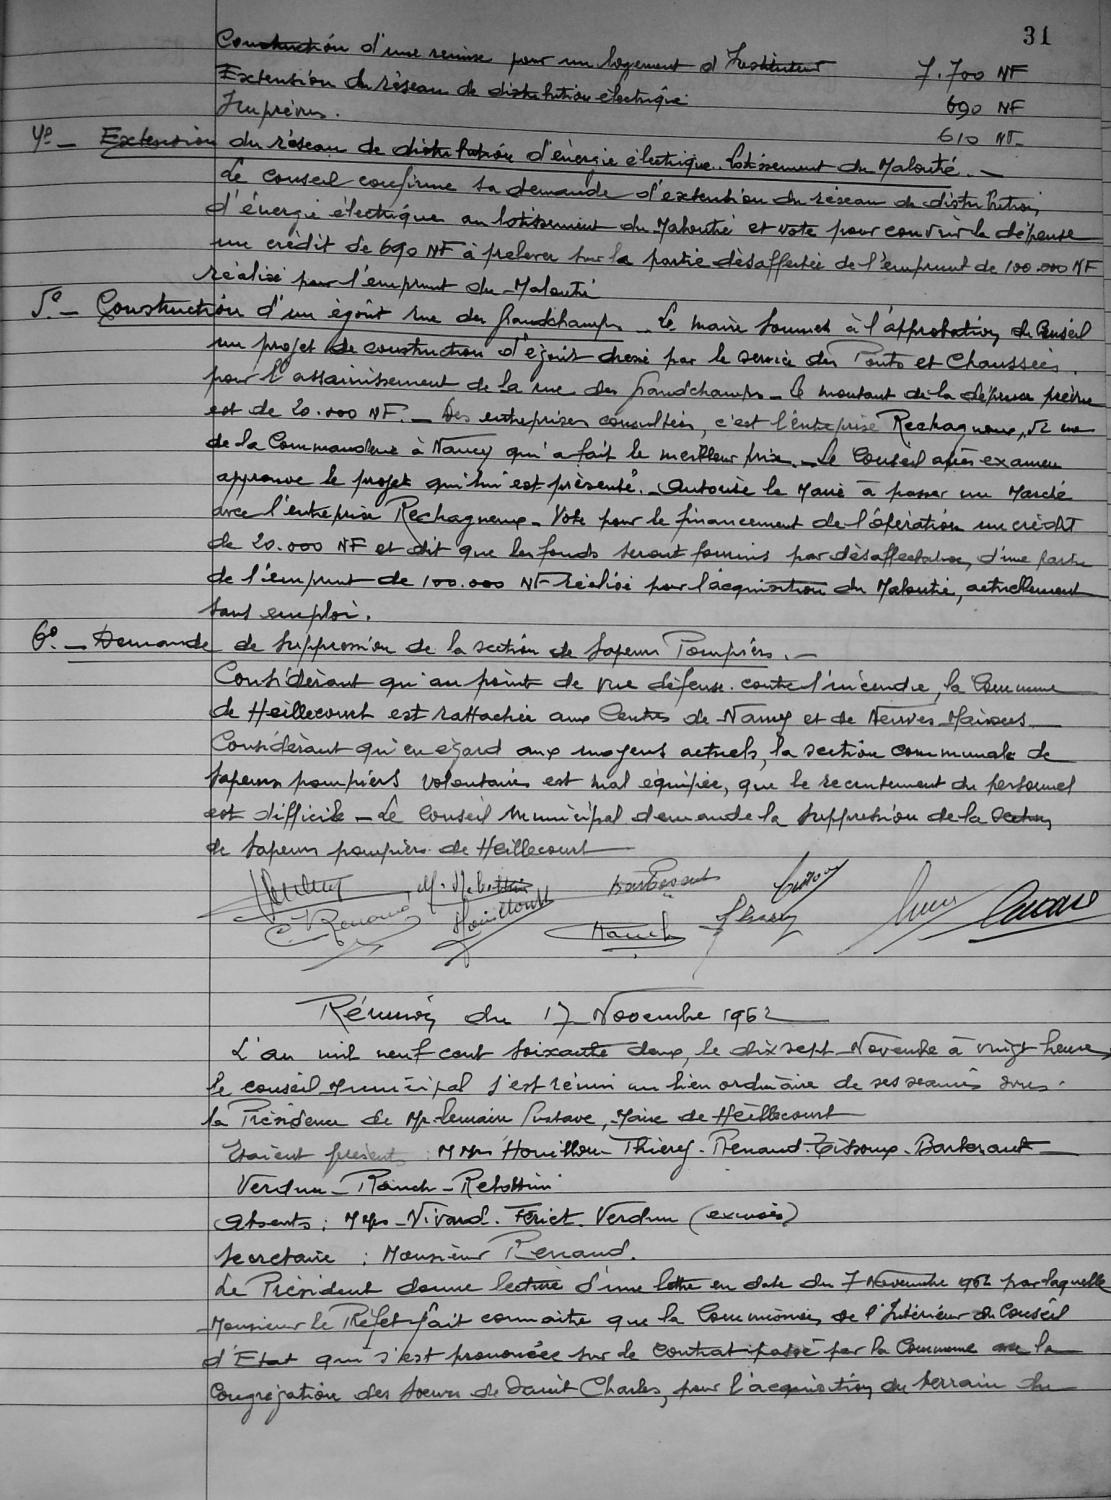 31
Construction d'une remise pour un logement d'Instituteur 7.700 NF
Extension du réseau de distribution électrique 690 NF
Imprévus. 610 NF.
4º - Extension du réseau de distribution d'énergie électrique. lotissement du Malouté. -
Le conseil confirme sa demande d'extension du réseau de distribution
d'énergie électrique au lotissement du Malouté et vote pour couvrir la dépense
un crédit de 690 NF à prélever sur la partie désaffectée de l'emprunt de 100.000 NF
réalisé pour l'emprunt du Malouté
5º - Construction d'un égoût rue des Grandchamps - Le maire soumet à l'approbation du Conseil
un projet de construction d'égout dressé par le service des Ponts et Chaussées.
pour l'assainissement de la rue des Grandchamps - le montant de la dépense prévue
est de 20.000 NF. - Des entreprises consultées, c'est l'entreprise Rechagneux, rue
de la Commanderie à Nancy qui a fait le meilleur prix. - Le Conseil après examen
approuve le projet qui lui est présenté. - Autorise le Maire à passer un Marché
avec l'entreprise Rechagneux - Vote pour le financement de l'opération un crédit
de 20.000 NF et dit que les fonds seront fournis par désaffectation d'une partie
de l'emprunt de 100.000 NF réalisé pour l'acquisition du Malouté, actuellement
sans emploi.
6º. - Demande de suppression de la section de Sapeurs Pompiers. -
Considérant qu'au point de vue défense contre l'incendie, la Commune
de Heillecourt est rattachée aux Centres de Nancy et de Neuves-Maisons
Considérant qu'en égard aux moyens actuels, la section communale de
sapeurs pompiers volontaires est mal équipée, que le recrutement du personnel
est difficile - Le Conseil Municipal demande la suppression de la section
de sapeurs pompiers de Heillecourt
M. Rebottini Barbesant
C Renaud Houillon Rauch Thiery
Réunion du 17 Novembre 1962
L'an mil neuf cent soixante deux, le dix sept Novembre à vingt heures
le conseil Municipal s'est réuni au lieu ordinaire de ses séances sous
la Présidence de Mr. Lemaire Gustave, Maire de Heillecourt
Etaient présents : MMrs Houillon - Thiery - Renaud - Tissoux - Barbesant
Verdun - Rauch - Rebottini
Absents : MMrs - Vivard. Feriet. Verdun (excusés)
Secrétaire : Monsieur Renaud.
Le Président donne lecture d'une lettre en date du 7 Novembre 1962 par laquelle
Monsieur le Préfet fait connaître que la Commission de l'Intérieur du Conseil
d'Etat qui s'est prononcée sur le contrat passé par la Commune avec la
Congrégation des Soeurs de Saint Charles, pour l'acquisition du terrain du